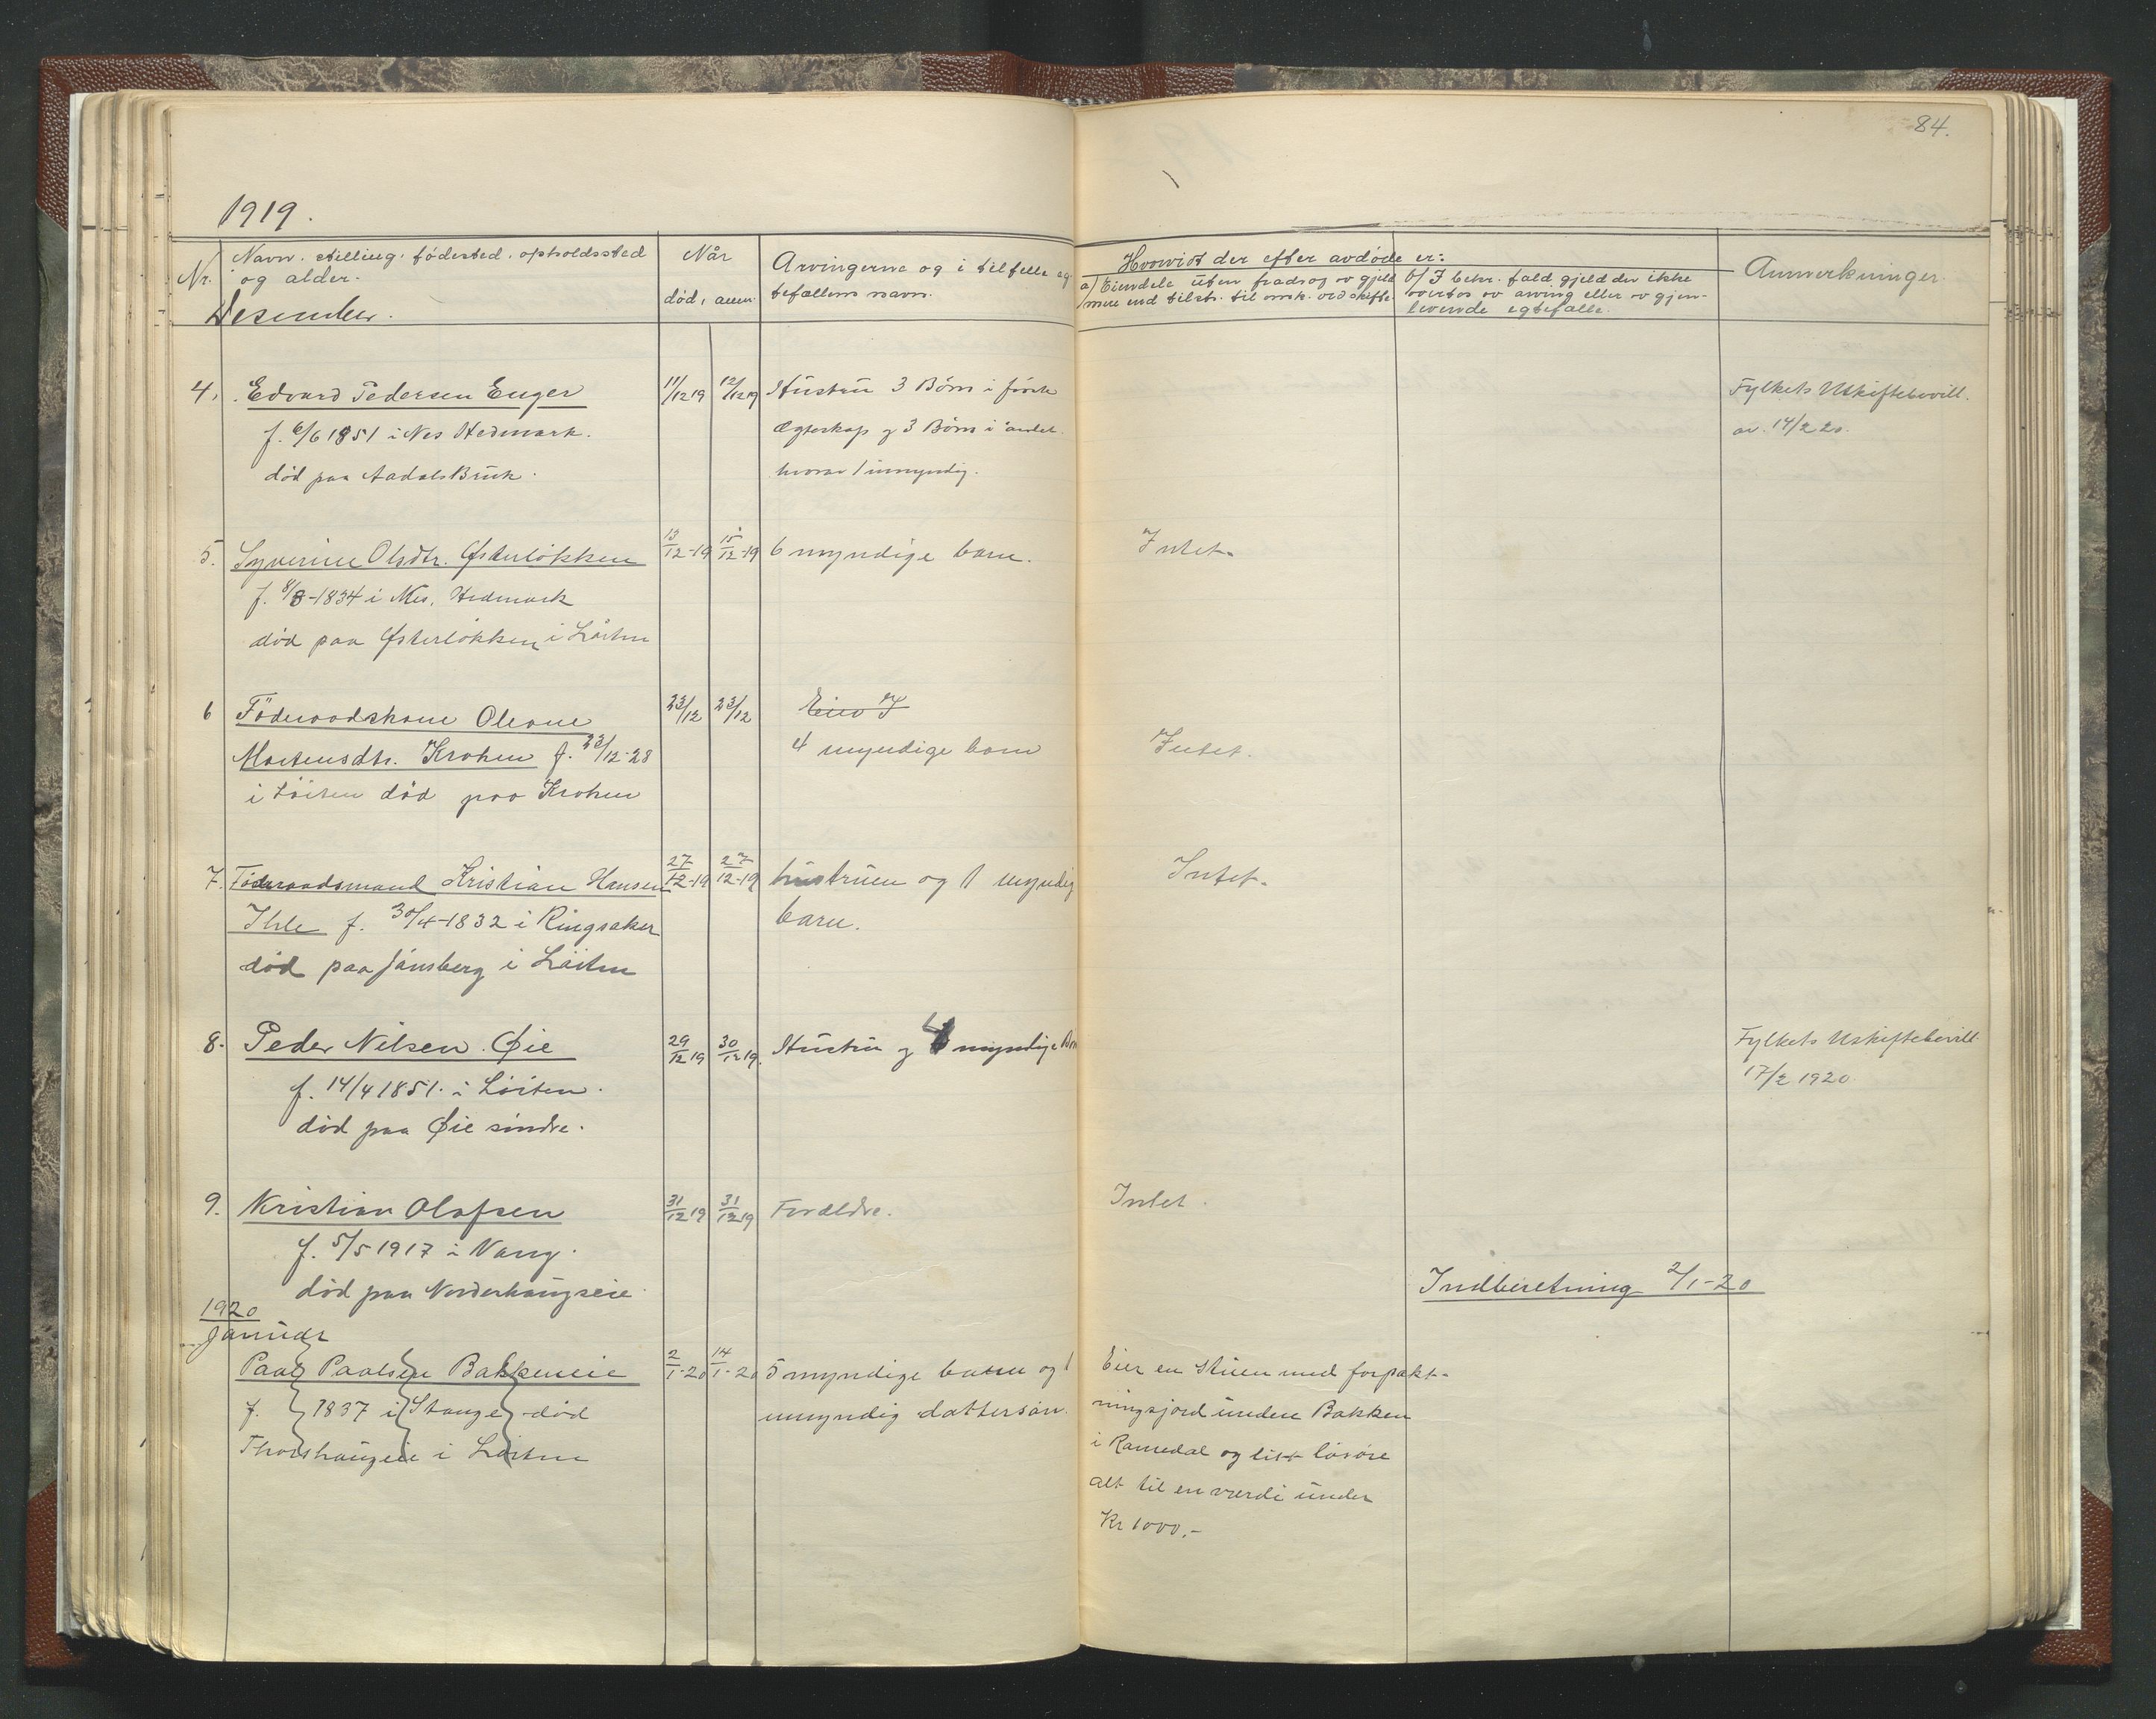 84.
1919.
Nr.
Navn. stilling. fødested. opholdssted
og alder.
Når
død, anm.
Arvingerne og i tilfelle eg-
tefællens navn.
Hvorvidt der efter avdøde er:
a/ Eiendele uten fradrag av gjeld
mere end tilstr. til omk. ved skifte
b/ I betr. fald gjeld der ikke
overtas av arving eller av gjen-
levende egtefælle.
Anmerkninger
Desember.
4. Edvard Pedersen Enger 11/12 19 12/12 19 Hustru 3 Børn i første Fylkets Uskiftebevill.
f. 6/6 1851 i Nes Hedmark. Ægteskap og 3 Børn i andet av 14/2 20.
død paa Aadals Bruk. hvorav 1 umyndig.
5. Syverine Olsdtr. Østerløkken 13/12-19 15/12-19 6 myndige barn. Intet.
f. 8/8-1834 i Nes, Hedmark
død paa Østerløkken i Løiten
6 Føderaadskone Oleane 23/12 23/12 Eier I
Mortensdtr. Krohen f. 23/12-28 4 myndige barn Intet.
i Løiten død paa Krohen
7. Føderaadsmand Kristian Hansen 27/12-19 27/12-19 hustruen og 1 myndig Intet.
Ihle f. 30/4-1832 i Ringsaker barn.
død paa Jønsberg i Løiten
8. Peder Nilsen Øie 29/12 19 30/12 19. Hustru og 4 myndige Børn Fylkets Uskiftebevill.
f. 14/4 1851. i Løiten. 17/2 1920.
død paa Øie søndre.
9. Kristian Olafsen 31/12 19 31/12 19 Forældre. Intet.
f. 5/5 1917 i Vang.
død paa Norderhaugseie.
Indberetning 2/1-20
1920
Januar
Paal Paalsen Bakkeneie 2/1-20 14/1-20 5 myndige barn og 1 Eier en Stuen med forpakt-
f. 1837 i Stange død umyndig dattersøn. ningsjord under Bakken
Thorshaugeie i Løiten i Romedal og litt løsøre
alt til en værdi under
Kr 1000.-